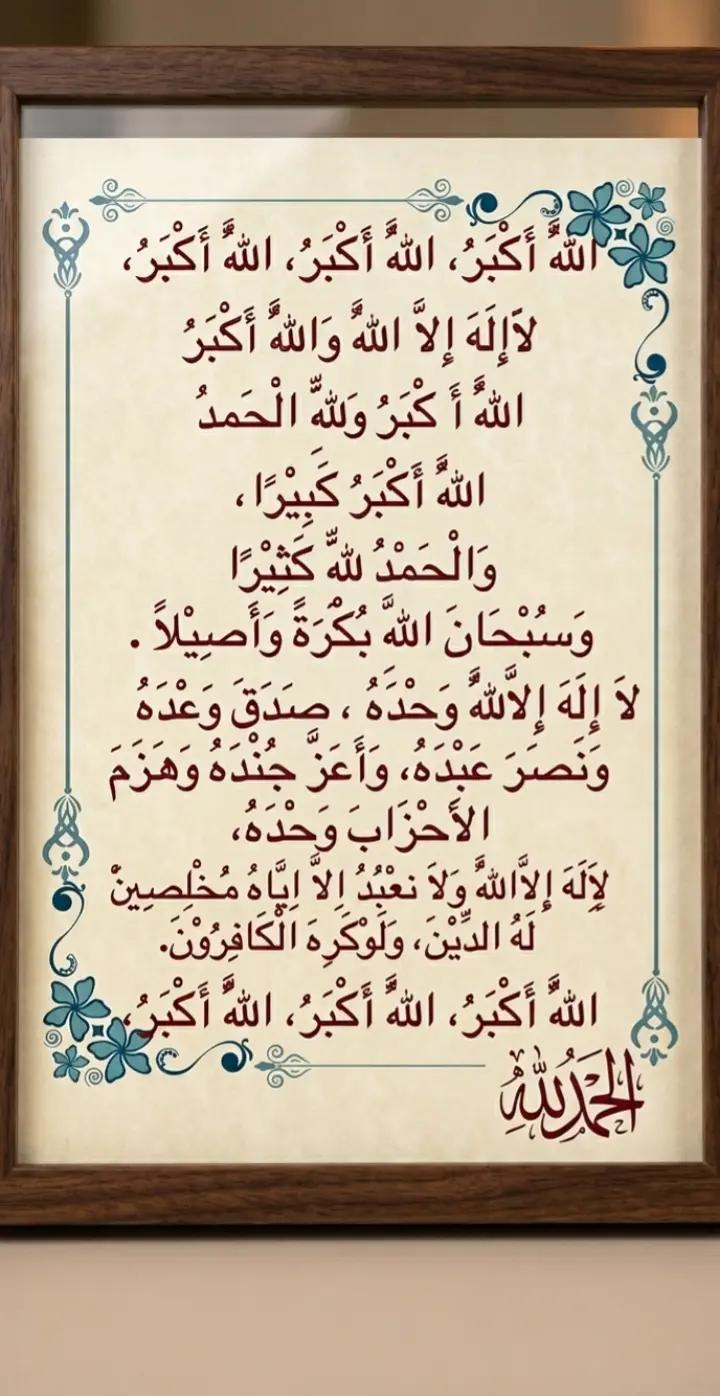 اللهُ أَكْبَرُ، اللهُ أَكْبَرُ، اللهُ أَكْبَرُ،
لاَإِلَهَ إِلاَّ اللهُ وَاللهُ أَكْبَرُ
اللهُ أَ كْبَرُ وَللهِ الْحَمدُ
اللهُ أَكْبَرُ كَبِيْرًا،
وَالْحَمْدُ للهِ كَثِيْرًا
وَسُبْحَانَ اللهَ بُكْرَةً وَأَصِيْلاً .
لاَ إِلَهَ إِلاَّاللهُ وَحْدَهُ ، صَدَقَ وَعْدَهُ
وَنَصَرَ عَبْدَهُ، وَأَعَزَّ جُنْدَهُ وَهَزَمَ
الأَحْزَابَ وَحْدَهُ،
لإَلَهَ إِلاَّاللهُ وَلاَ نعْبُدُ اِلاَّ اِيَّاهُ مُخْلِصِينْ
لَهُ الدِّيْنَ، وَلَوْكَرِهَ الْكَافِرُوْنَ.
اللهُ أَكْبَرُ، اللهُ أَكْبَرُ، اللهُ أَكْبَرُ،
الحَمْدُ لِلّٰهِ